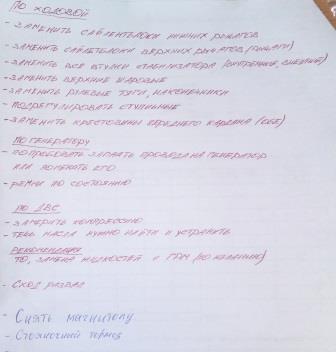 ПО ХОДОВОЙ
- ЗАМЕНИТЬ САЙЛЕНТБЛОКИ НИЖНИХ РЫЧАГОВ
- ЗАМЕНИТЬ САЙЛЕНТБЛОКИ ВЕРХНИХ РЫЧАГОВ (РЫЧАГИ)
- ЗАМЕНИТЬ ВСЕ ВТУЛКИ СТАБИЛИЗАТОРА (ВНУТРЕННИЕ, ВНЕШНИЕ)
- ЗАМЕНИТЬ ВЕРХНИЕ ШАРОВЫЕ
- ЗАМЕНИТЬ РУЛЕВЫЕ ТЯГИ, НАКОНЕЧНИКИ
- ПОДРЕГУЛИРОВАТЬ СТУПИЧНЫЕ
- ЗАМЕНИТЬ КРЕСТОВИНЫ ПЕРЕДНЕГО КАРДАНА (ОБЕ)
ПО ГЕНЕРАТОРУ
- ПОПРОБОВАТЬ ЗАПАЯТЬ ПРОВОДА НА ГЕНЕРАТОР
ИЛИ ПОМЕНЯТЬ ЕГО
- РЕМНИ ПО СОСТОЯНИЮ
ПО ДВС
- ЗАМЕРИТЬ КОМПРЕССИЮ
- ТЕЧЬ МАСЛА НУЖНО НАЙТИ И УСТРАНИТЬ
РЕКОМЕНДАЦИЯ
ТО, ЗАМЕНА ЖИДКОСТЕЙ И ГРМ (ПО ЖЕЛАНИЮ)
- СХОД РАЗВАЛ
- Снять магнитолу
- Стояночный тормоз